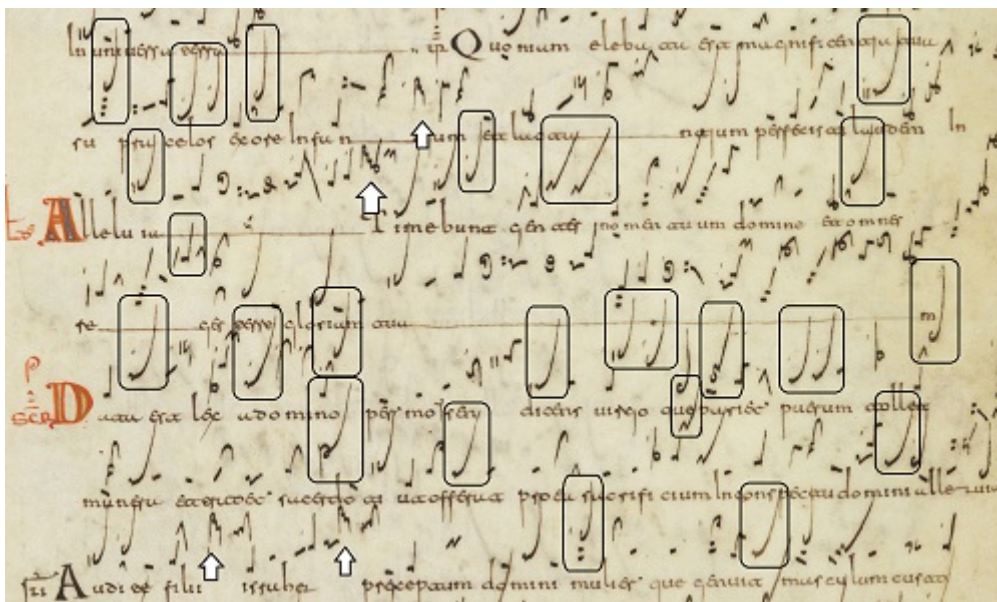 In universa terra Quoniam elebata est magnificentia tua
super celos ex ore Infantium et lactantium perfecisti laudem In
Alleluia Timebunt gentes nomen tuum domine et omnes
reges terre gloriam tuam
Data est lex a domino per mosen dicens virgo que puerum tollet
munera et sacerdoti ut offerat pro ea sacrificium In conspectu domini alleluia
Audi filii israhel preceptum domini mulier que genuit masculum